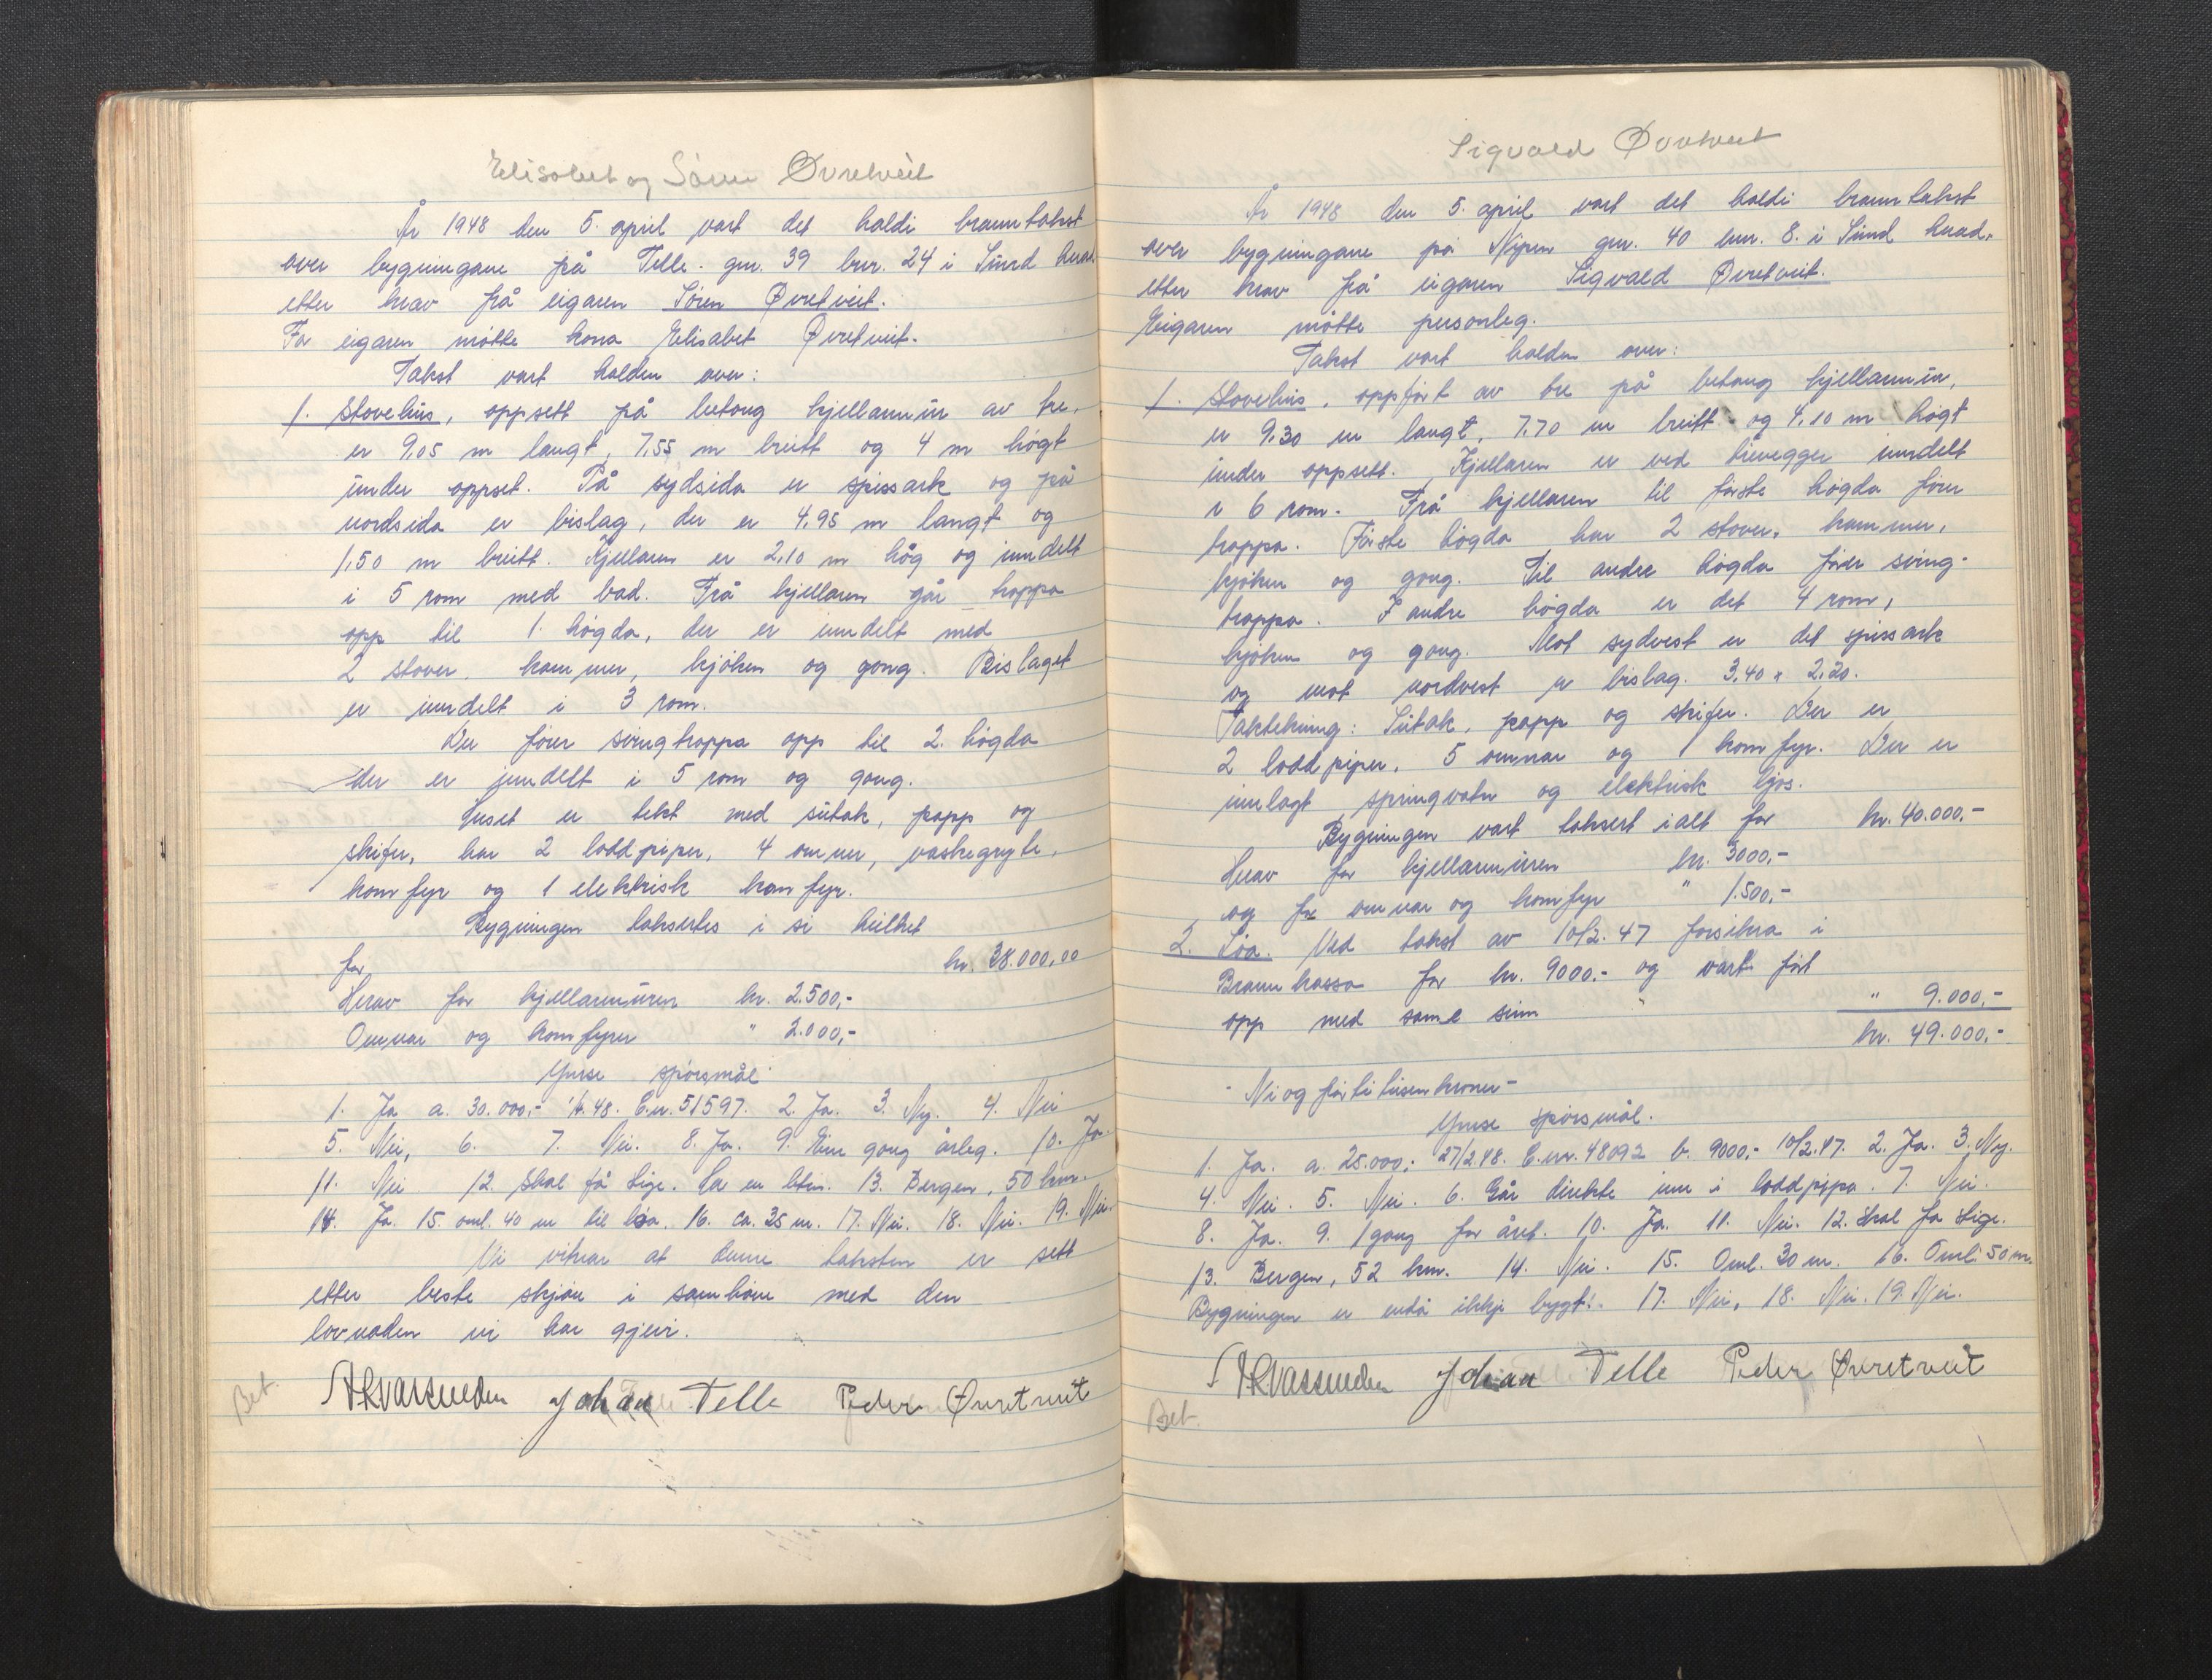 Elisabet og Søren Øvretveit
År 1948 den 5. april vart det haldi branntakst
over bygningane på Telle. gnr. 39 bnr. 24 i Sund herad
etter krav frå eigaren Søren Øvretveit.
For eigaren møtte kona Elisabet Øvretveit.
Takst vart halden over:
1. Stovehus, oppsett på betong kjellarmur av tre,
er 9,05 m langt, 7,55 m breitt og 4 m høgt
under oppset. På sydsida er spissark og på
nordsida er bislag, der er 4,95 m langt og
1,50 m breitt. Kjellaren er 2,10 m høg og inndelt
i 5 rom med bad. Frå kjellaren går troppa
opp til 1. høgda, der er inndelt med
2 stover, kammer, kjøken og gong. Bislaget
er inndelt i 3 rom.
Der fører svingtroppa opp til 2. høgda
der er inndelt i 5 rom og gong.
Huset er tekt med sutak, papp og
skifer, har 2 loddpiper, 4 omner, vaskegryte,
komfyr og 1 elektrisk komfyr.
Bygningen taksertes i si heilhet
for kr. 38.000,00
Herav for kjellarmuren kr. 2.500,-
Omnar og komfyrer " 2.000,-
Ymse spørsmål
1. Ja a. 30.000,- 1/4.48. C.nr. 51597. 2. Ja. 3. Ny. 4. Nei
5. Nei, 6. 7. Nei. 8. Ja. 9. Ein gong årleg. 10. Ja.
11. Nei 12. Skal få stige. Ca en liten. 13. Bergen, 50 km.
14. Ja. 15. oml. 40 m til løa. 16. ca. 25 m. 17. Nei. 18. Nei. 19. Nei.
Vi vitnar at denne taksten er sett
etter beste skjøn i samhøve med den
lovnaden vi har gjevi.
Bet. Johan Telle Peder Øvretveit
Sigvald Øvretveit
År 1948 den 5. april vart det haldi branntakst
over bygningane på Nipen gnr. 40 bnr. 8. i Sund herad.
etter krav frå eigaren Sigvald Øvretveit.
Eigaren møtte personleg.
Takst vart halden over:
1. Stovehus, oppført av tre på betong kjellarmur,
er 9,30 m langt, 7,70 m breitt og 4,10 m høgt
under oppsett. Kjellaren er ved trevegger inndelt
i 6 rom. Frå kjellaren til første høgda fører
troppa. Første høgda har 2 stover, kammer,
kjøken og gong. Til andre høgda fører sving-
troppa. I andre høgda er det 4 rom,
kjøken og gong. Mot sydvest er det spissark
og mot nordvest er bislag. 3,40 x 2,20.
Taktekning: Sutak, papp og skifer. Der er
2 loddpiper, 5 omnar og 1 komfyr. Der er
innlagt springvatn og elektrisk ljos.
Bygningen vart taksert i alt for kr. 40.000,-
Herav for kjellarmuren kr. 3000,-
og for omnar og komfyr " 1.500,-
2. Løa. Ved takst av 10/2.47 forsikra i
Brannkassa for kr. 9000.- og vart ført
opp med same sum " " 9.000,-
kr. 49.000,-
- Ni og førti tusen kroner -
Ymse spørsmål.
1. Ja. a. 25.000,- 27/2.48. C.nr. 48092 b. 9000,- 10/2.47. 2. Ja. 3. Ny.
4. Nei. 5. Nei. 6. Går direkte inn i loddpipa. 7. Nei.
8. Ja. 9. 1 gong for året. 10. Ja. 11. Nei. 12. Skal få stige.
13. Bergen, 52 km. 14. Nei. 15. Oml. 30 m. 16. Oml. 50 m.
Bygningen er endå ikkje bygt. 17. Nei, 18. Nei. 19. Nei.
Johan Telle Peder Øvretveit
Bet.